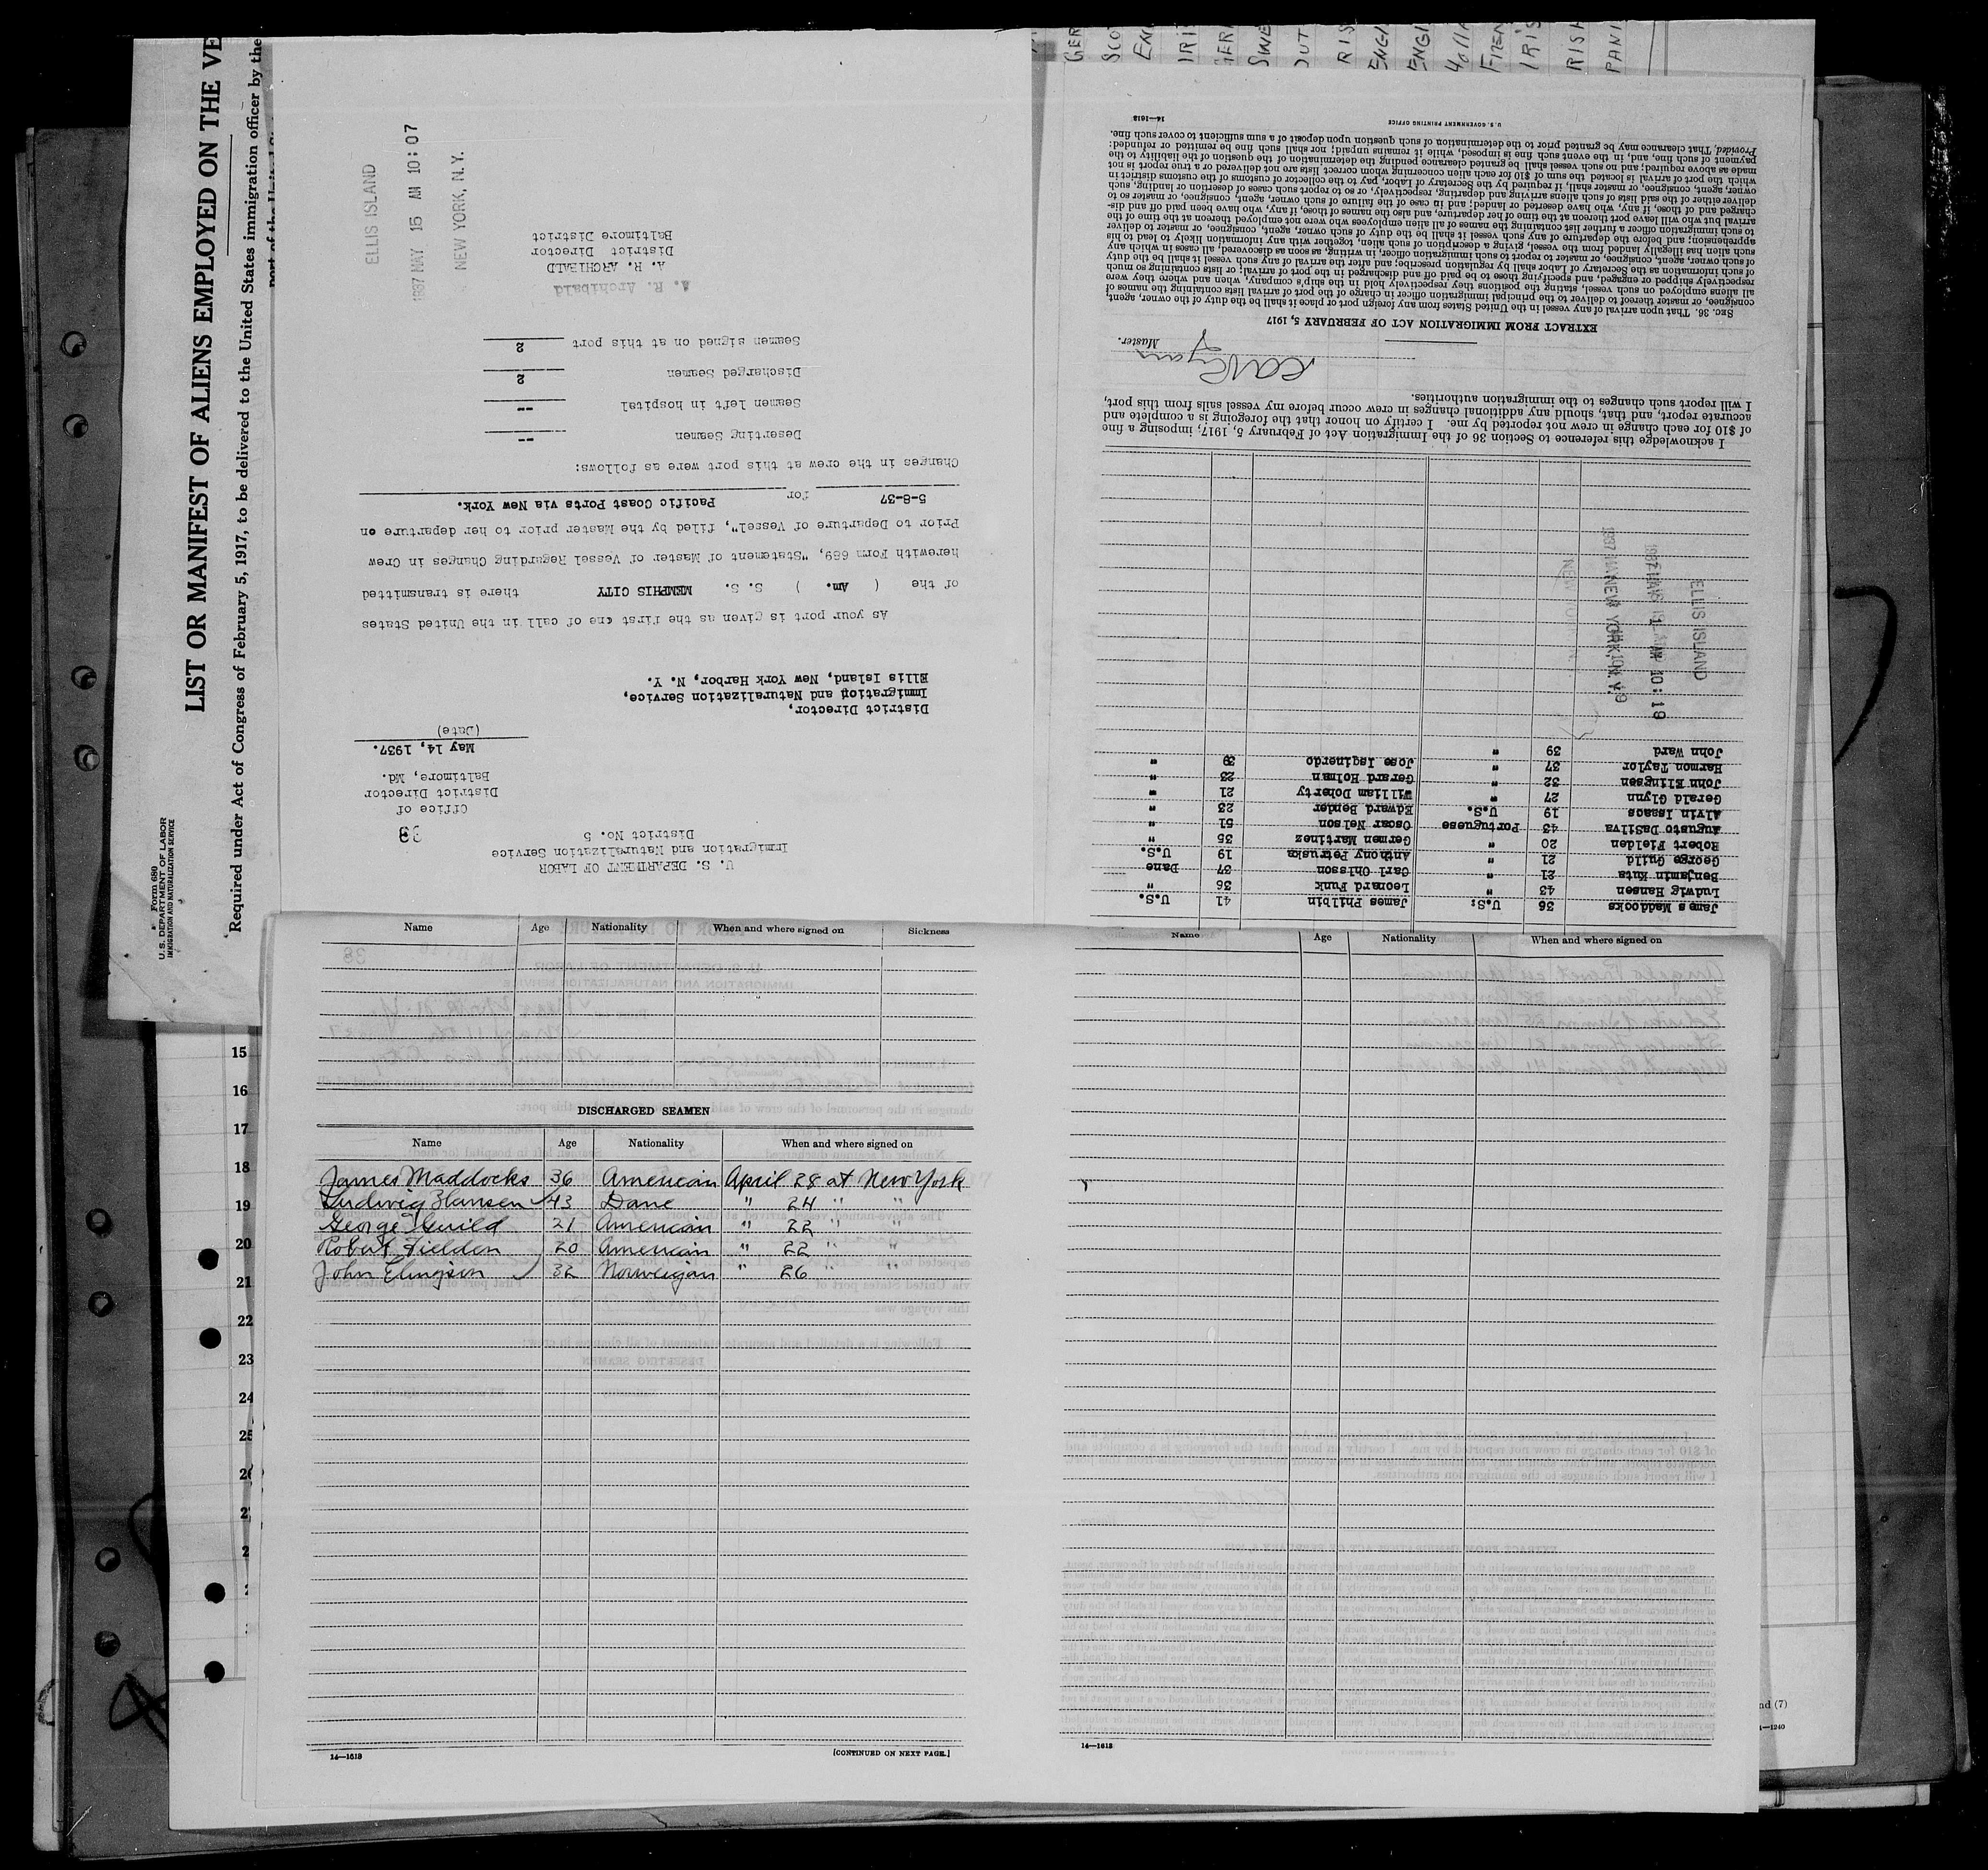 LIST OR MANIFEST OF ALIENS EMPLOYED ON THE VE
Required under Act of Congress of February 5, 1917, to be delivered to the United States immigration officer by the
Form 689
U.S. DEPARTMENT OF LABOR
IMMIGRATION AND NATURALIZATION SERVICE
U. S. DEPARTMENT OF LABOR
Immigration and Naturalization Service
District No. 5
33
Office of
District Director
Baltimore, Md.
May 14, 1937.
(Date)
District Director,
Immigration and Naturalization Service,
Ellis Island, New York Harbor, N. Y.
As your port is given as the first one of call in the United States
of the ( Am. ) S. S. MEMPHIS CITY there is transmitted
herewith Form 689, "Statement of Master of Vessel Regarding Changes in Crew
Prior to Departure of Vessel", filed by the Master prior to her departure on
5-8-37 for Pacific Coast Ports via New York.
Changes in the crew at this port were as follows:
Deserting Seamen --
Seamen left in hospital --
Discharged Seamen 2
Seamen signed on at this port 2
A. R. Archibald
A. R. ARCHIBALD
District Director
Baltimore District
ELLIS ISLAND
1937 MAY 15 AM 10:07
NEW YORK, N.Y.
James Maddocks 36 U.S. James Philbin 41 U.S.
Ludwig Hansen 43 " Leonard Funk 36 "
Benjamin Kuta 21 " Carl Ohlsson 37 Dane
George Guild 21 " Anthony Petruska 19 U.S.
Robert Fielden 20 " German Martinez 35 "
Augusto DaSilva 43 Portuguese Oscar Nelson 51 "
Alvin Isaacs 19 U.S. Edward Bender 23 "
Gerald Glynn 27 " William Doherty 21 "
John Elingsen 32 " Gerard Holman 23 "
Harmon Taylor 37 " Jose Isginerdo 39 "
John Ward 39 "
ELLIS ISLAND
10:19
NEW YORK, N.Y.
I acknowledge this reference to Section 36 of the Immigration Act of February 5, 1917, imposing a fine
of $10 for each change in crew not reported by me. I certify on honor that the foregoing is a complete and
accurate report, and that, should any additional changes in crew occur before my vessel sails from this port,
I will report such changes to the immigration authorities.
Master.
EXTRACT FROM IMMIGRATION ACT OF FEBRUARY 5, 1917
SEC. 36. That upon arrival of any vessel in the United States from any foreign port or place it shall be the duty of the owner, agent,
consignee, or master thereof to deliver to the principal immigration officer in charge of the port of arrival lists containing the names of
all aliens employed on such vessel, stating the positions they respectively hold in the ship's company, when and where they were
respectively shipped or engaged, and specifying those to be paid off and discharged in the port of arrival; or lists containing so much
of such information as the Secretary of Labor shall by regulation prescribe; and after the arrival of any such vessel it shall be the duty
of such owner, agent, consignee, or master to report to such immigration officer, in writing, as soon as discovered, all cases in which any
such alien has illegally landed from the vessel, giving a description of such alien, together with any information likely to lead to his
apprehension; and before the departure of any such vessel it shall be the duty of such owner, agent, consignee, or master to deliver
to such immigration officer a further list containing the names of all alien employees who were not employed thereon at the time of the
arrival but who will leave port thereon at the time of her departure, and also the names of those, if any, who have been paid off and dis-
charged and of those, if any, who have deserted or landed; and in case of the failure of such owner, agent, consignee, or master so to
deliver either of the said lists of such aliens arriving and departing, respectively, or so to report such cases of desertion or landing, such
owner, agent, consignee, or master shall, if required by the Secretary of Labor, pay to the collector of customs of the customs district in
which the port of arrival is located the sum of $10 for each alien concerning whom correct lists are not delivered or a true report is not
made as above required; and no such vessel shall be granted clearance pending the determination of the question of the liability to the
payment of such fine, and, in the event such fine is imposed, while it remains unpaid; nor shall such fine be remitted or refunded:
Provided, That clearance may be granted prior to the determination of such question upon deposit of a sum sufficient to cover such fine.
U. S. GOVERNMENT PRINTING OFFICE 14—1618
Name Age Nationality When and where signed on Sickness
DISCHARGED SEAMEN
Name Age Nationality When and where signed on
James Maddocks 36 American April 28 at New York
Ludwig Hansen 43 Dane " 24 " "
George Guild 21 American " 22 "
Robert Fielden 20 American " 22 " "
John Elingsen 32 Norweigan " 26 " "
14—1618 [CONTINUED ON NEXT PAGE.]
Name Age Nationality When and where signed on
14—1618
15
16
17
18
19
20
21
22
23
24
25
nd (7)